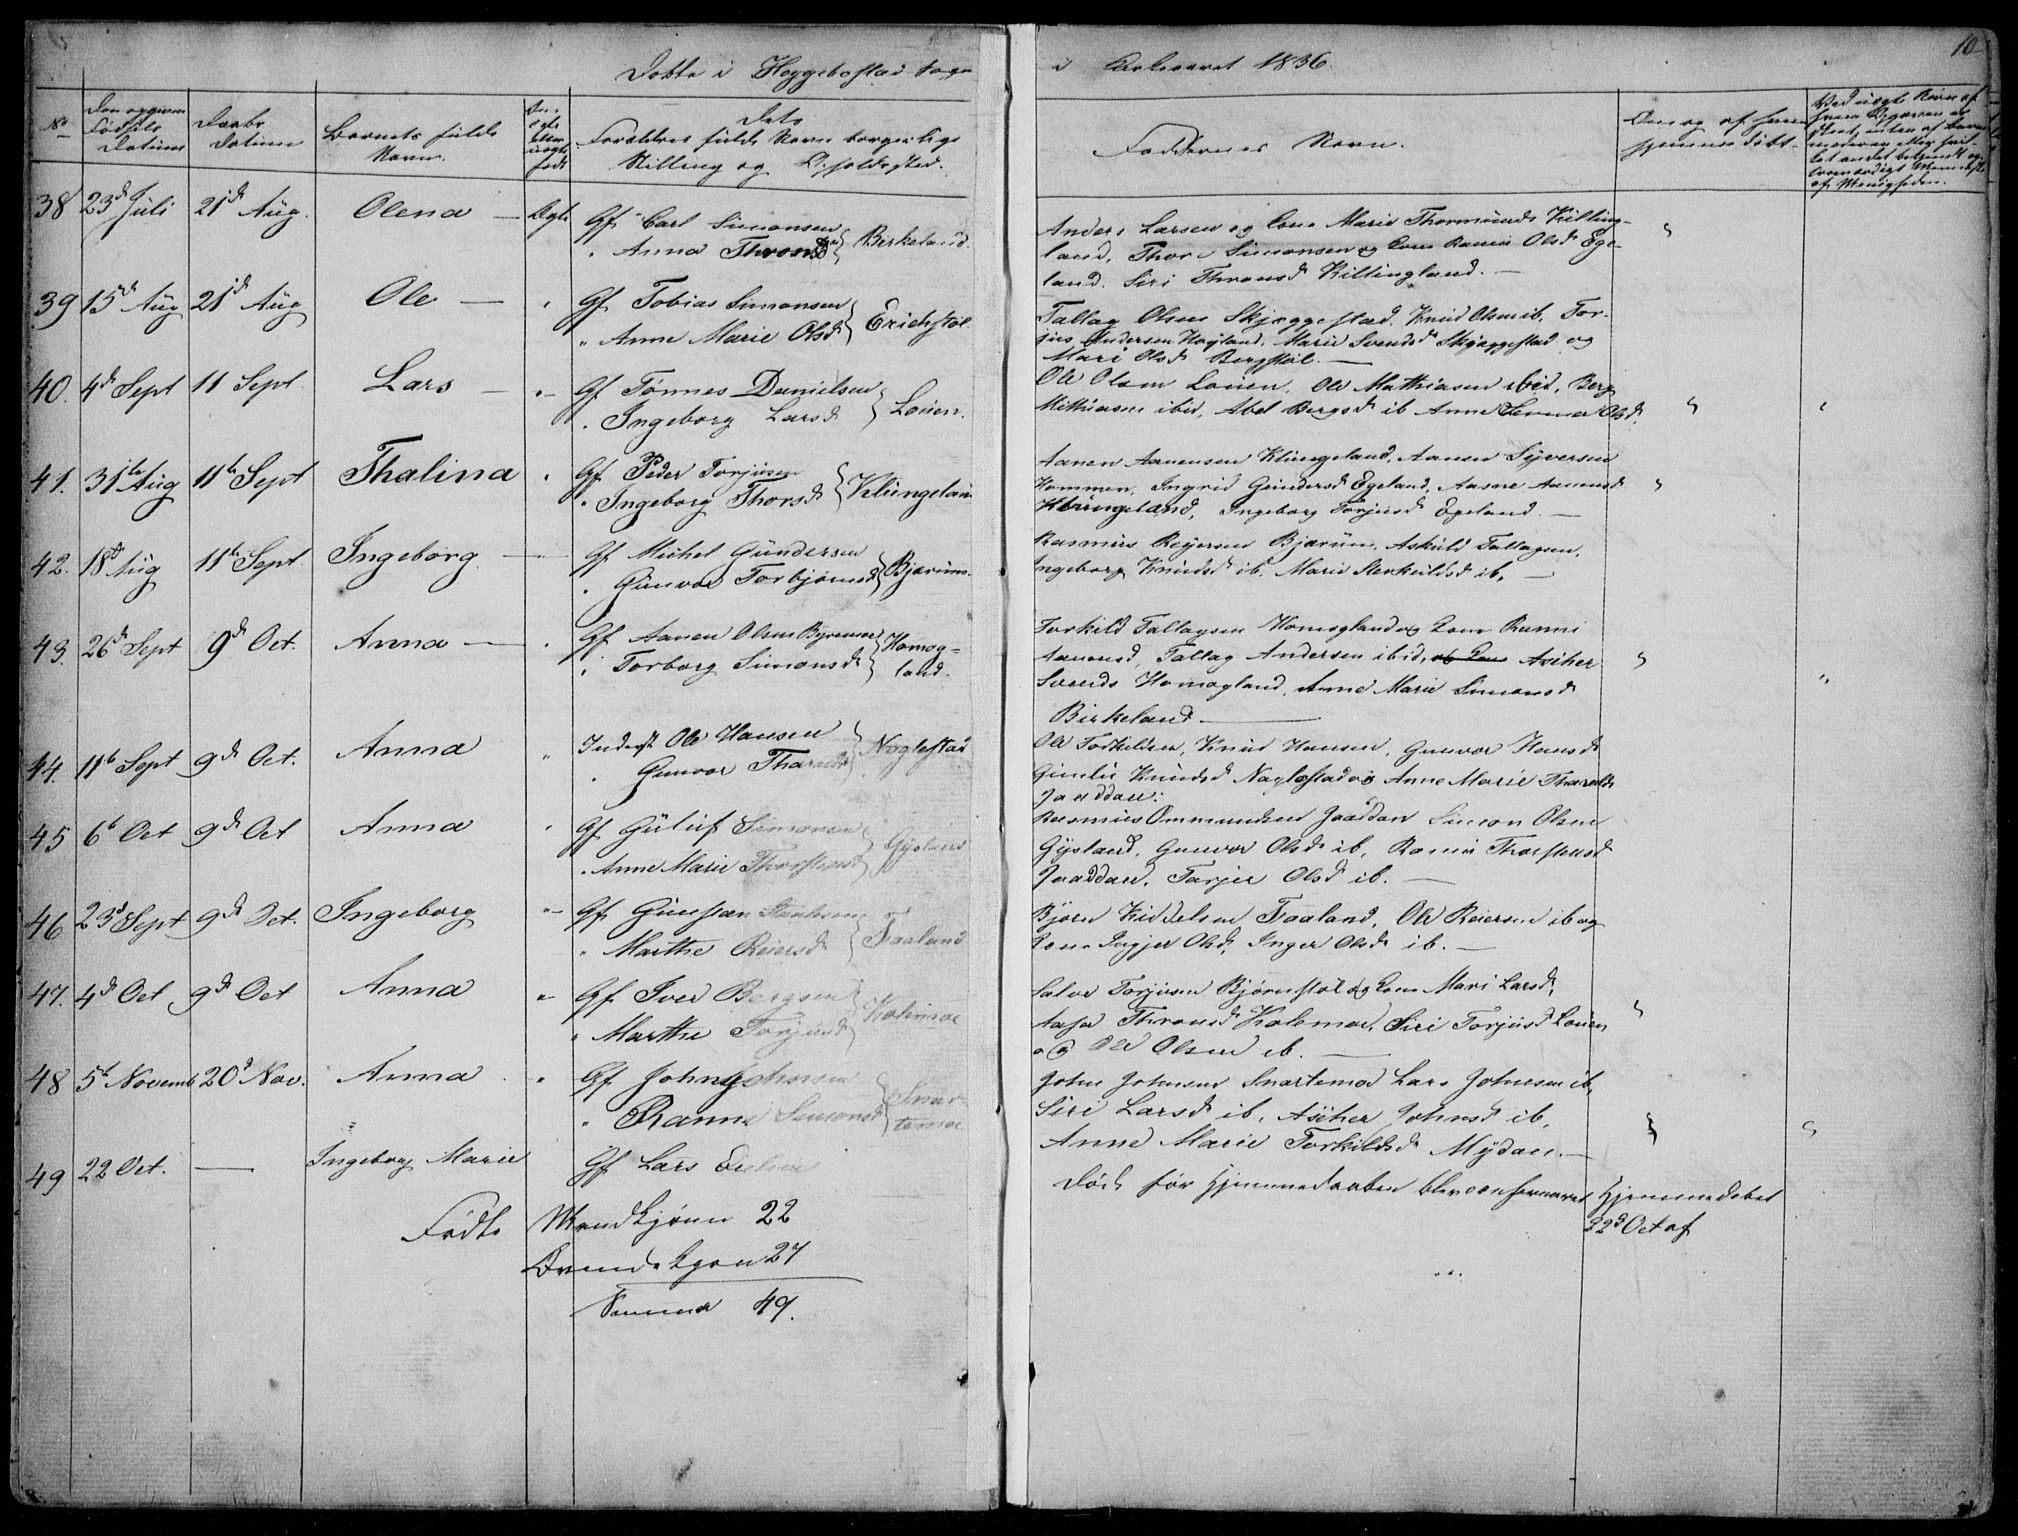 10
Døbte i Heggebostad Sogn i Kirkeaaret 1836.
No
Den opgivne Fødsels Datum
Daabs Datum
Barnets fulde Navn.
Om ægte eller uægte født
Dets Forældres fulde Navn borgerlige Stilling og Opholdssted.
Faddernes Navn.
Om og af hvem hjemmedøbt.
38 23d Juli 21d Aug. Olena — Ægte
Gf Carl Simonsen
" Anna Thronsd } Birkeland.
Anders Larsen og Kone Marie Thormunds Killing-
land, Thore Simonsen og Kone Rannei Olsd Ege-
land. Siri Thronsd Killingland. —
39 15d Aug 21d Aug Ole —
Gf Tobias Simonsen
" Anne Marie Olsd } Erichstøl
Tallag Olsen Skjeggestad, Knud Olsen ib, Tor-
jus Andersen Høyland, Marie Svendsd Skjeggestad og
Mari Olsd Bergstøl. —
40. 4d Sept 11 Sept Lars —
Gf Tønnes Danielsen
" Ingeborg Larsd } Louen.
Ole Olsen Louen, Ole Mathiasen ibid, Berg
Mathiasen ibid, Abel Bergsd ib Anne Olsd.
41. 31te Aug 11te Sept Thalina
Gf Peder Torjusen
" Ingeborg Thorsd } Klungeland
Aanen Aanensen Klungeland, Aanen Syversen
Hommen, Ingrid Gundersd Egeland, Aasne Aanensd
Klungeland, Ingeborg Torjusd Egeland. —
42. 18de Aug 11te Sept. Ingeborg. —
Gf Michel Gundersen
" Gunvor Torbjørnsd } Bjærum.
Rasmus Reijersen Bjærum, Askild Tallagsen,
Ingeborg Knudsd ib, Marie Sterkildsd ib, —
43. 26d Sept 9d Oct. Anna —
Gf Aanen Olsen Byremoe
" Torborg Simonsd } Homog-
land.
Torkild Tallagsen Homogland og Kone Ranni
Aanensd, Tallag Andersen ibid, og Kone Asiher
Svends Homogland, Anne Marie Simonsd
Birkeland —
44. 11te Sept 9d Oct. Anna
Inderst Ole Hansen
" Gunvor Tharalds } Noglestad
Ole Torkildsen, Knud Hansen, Gunvor Hansd
Gunlie Knudsd Naglestad og Anne Marie Tharalds
Jaaddan.
45 6te Oct 9d Oct Anna
Gf Guluf Simonsen
" Anne Marie Thorstensd } Gysland
Rasmus Ommundsen Jaaddan Simon Olsen
Gysland, Gunvor Olsd ib, Rannei Thorstensd
Jaaddan, Tarjer Olsd ib. —
46 23d Sept 9d Oct. Ingeborg
Gf Gunsten
" Marthe Reiersd } Faaland
Bjørn Kiddelsen Faaland, Ole Reiersen ib og
Kone Ingjer Olsd, Inger Olsd ib. —
47. 4d Oct 9d Oct Anna
Gf Iver Bergsen
" Marthe Torjusd } Kolemoe
Salve Torjusen Bjørnstøl og Kone Mari Larsd,
Aasa Thronsd Kolemoe, Siri Torjusd Louen
og Ole Olsen ib. —
48 5te Novemb 20d Nov. Anna
Gf John Johnsen
" Ranne Simonsd } Snar-
temoe
John Johnsen Snartemoe Lars Johnsen ib,
Siri Larsd ib, Asiher Johnsd ib,
Anne Marie Torkildsd Mydan. —
49 22 Oct. — Ingeborg Marie
Gf Lars
Død før Hjemmedaaben blev confirmeret
Hjemmedøbt
22d Oct af
Fødte Mandkjønn 22
Qvindekjøn 27
Summa 49.